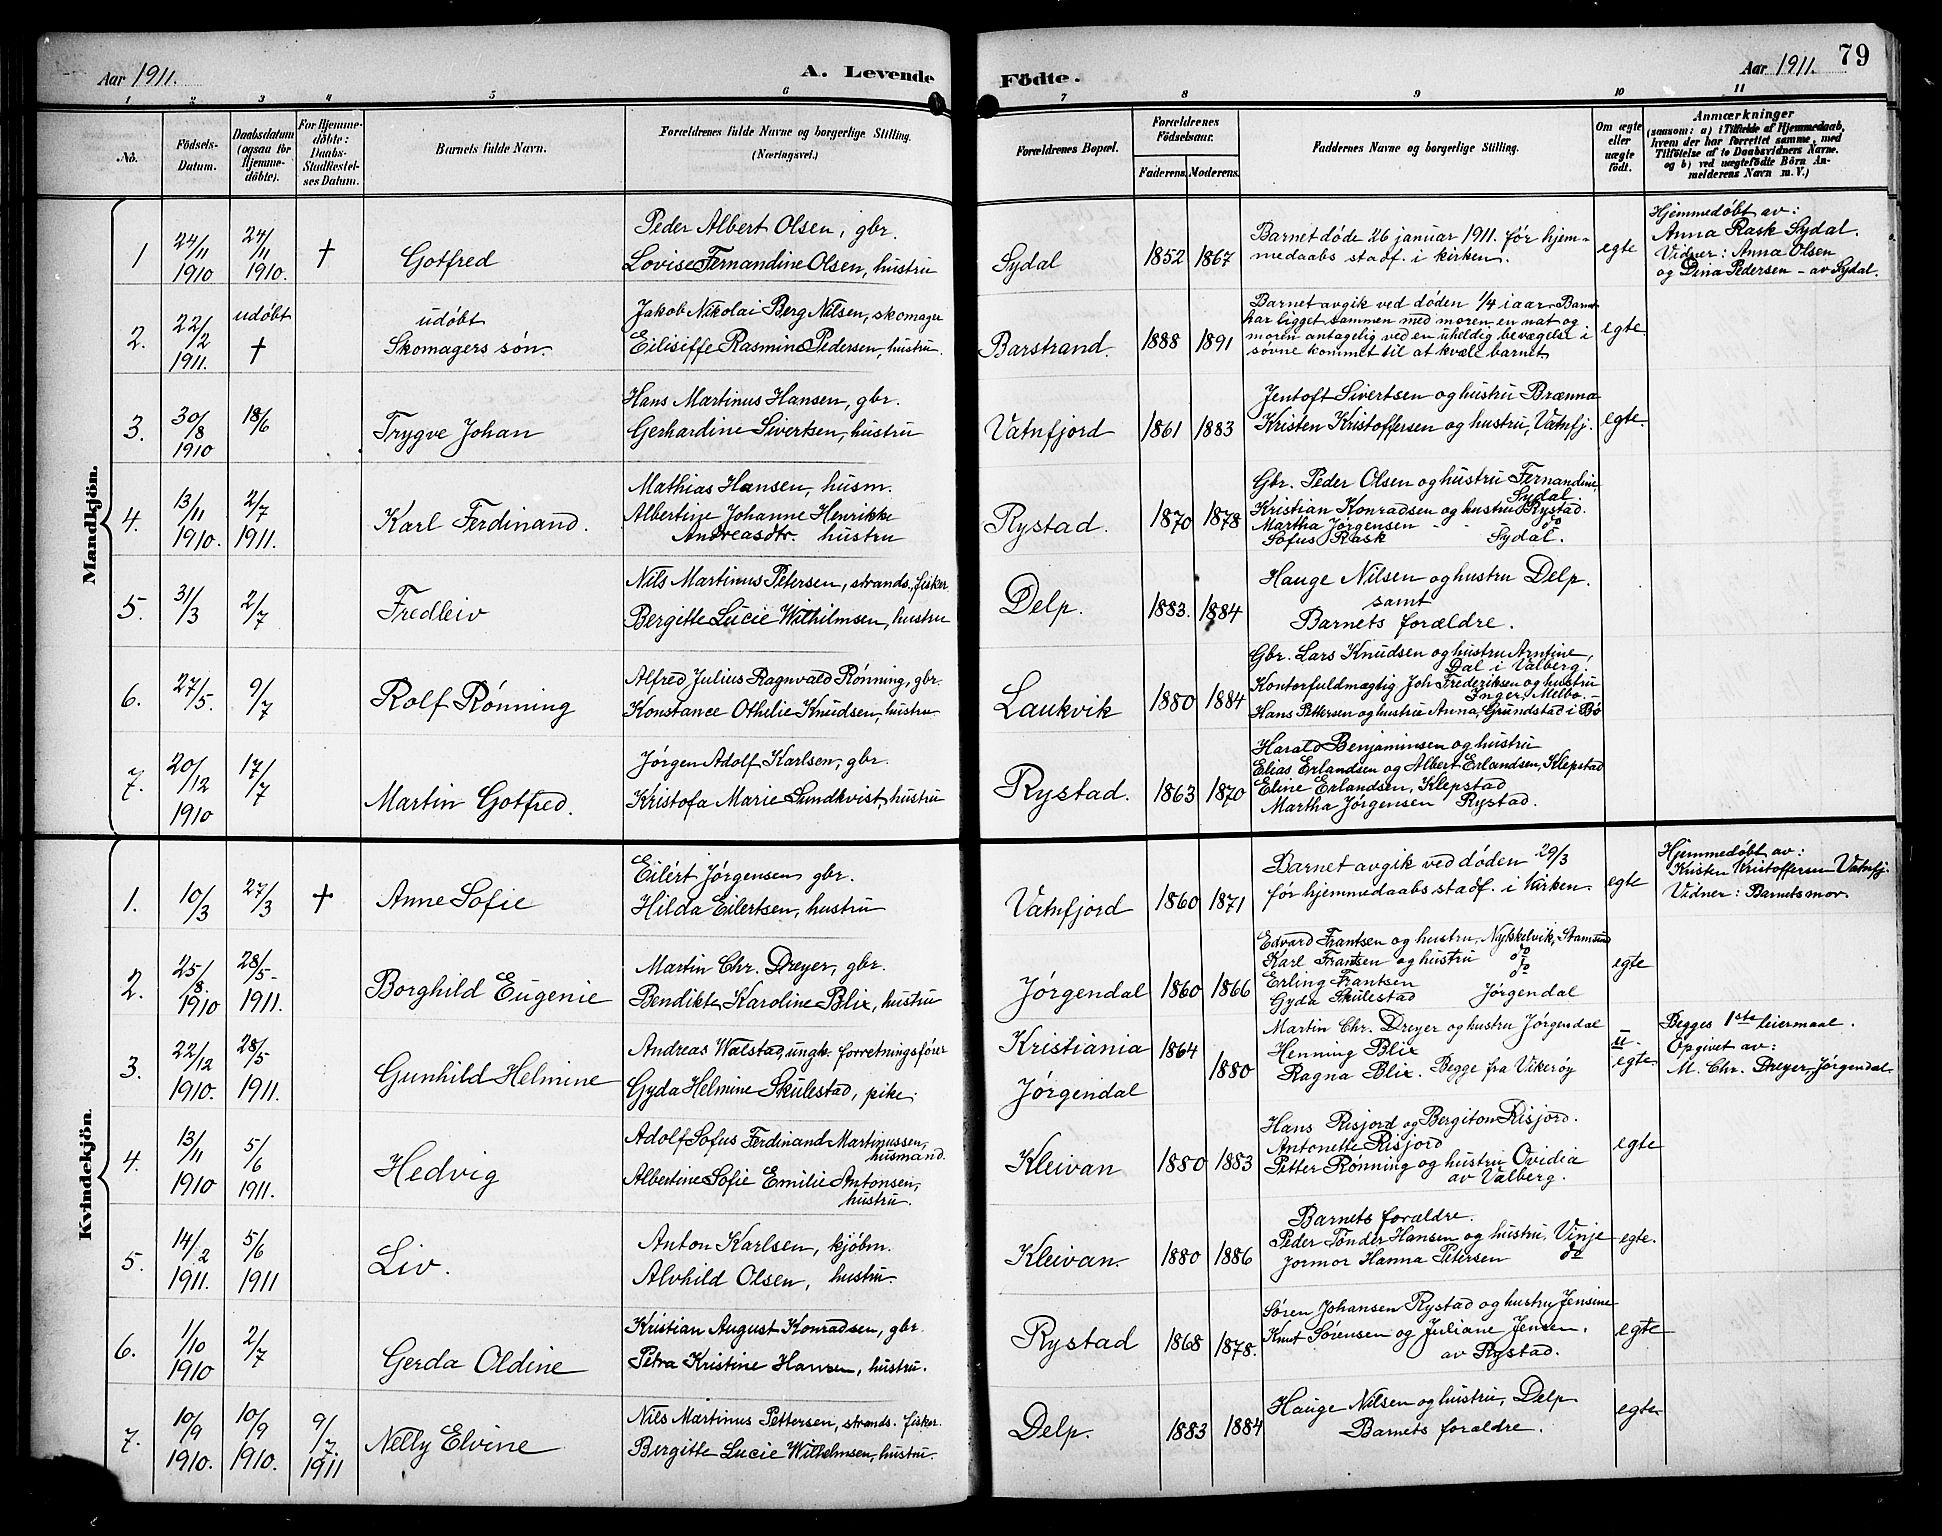 Aar 1911.
A. Levende
Födte.
Aar 1911.
79
1 2 3 4 5 6 7 8 9 10 11
No.
Födsels-
Datum.
Daabsdatum
(ogsaa for
Hjemme-
döbte).
For Hjemme-
döbte:
Daabs-
Stadfæstel-
ses Datum.
Barnets fulde Navn.
Forældrenes fulde Navne og borgerlige Stilling.
(Næringsvei.)
Forældrenes Bopæl.
Forældrenes
Födselsaar.
Faderens. Moderens.
Faddernes Navne og borgerlige Stilling.
Om ægte
eller
uægte
födt.
Anmærkninger
(saasom: a) i Tilfælde af Hjemmedaab,
hvem der har forrettet samme, med
Tilföielse af to Daabsvidners Navne.
og b) ved uægtefödte Börn An-
melderens Navn m. V.)
Mandkjön.
1
24/11
1910
24/11
1910.
†
Gotfred
Peder Albert Olsen, gbr.
Lovise Fernandine Olsen, hustru
Sydal
1852
1867
Barnet døde 26 januar 1911. før hjem-
medaabs stadf. i kirken.
egte
Hjemmedøbt av:
Anna Rask Sydal.
Vidner: Anna Olsen
og Dina Pedersen - av Sydal.
2.
22/2
1911.
udøbt
†
udøbt
Skomagers søn.
Jakob Nikolai Berg Nilsen, skomager
Eilisiffe Rasmine Pedersen, hustru.
Barstrand.
1888
1891
Barnet avgik ved døden 1/4 i aar. Barnet
har ligget sammen med moren en nat og
moren antagelig ved en uheldig bevægelse i
søvne kommet til at kvæle barnet.
egte.
3.
30/8
1910
18/6
Trygve Johan
Hans Martinus Hansen, gbr.
Gerhardine Sivertsen, hustru
Vatnfjord
1861
1883
Jentoft Sivertsen og hustru Brænna
Kristen Kristoffersen og hustru, Vatnfj.
egte.
4.
13/11
1910.
2/7
1911.
Karl Ferdinand.
Mathias Hansen, husm.
Albertine Johanne Henrikke
Andreasdtr. hustru
Rystad.
1870
1878
Gbr. Peder Olsen og hustru Fernandine,
Sydal
Kristian Konradsen og hustru Rystad.
Martha Jørgensen - - do
Sofus Rask Sydal.
5.
31/3
2/7
Fredleiv
Nils Martinus Petersen, strands. fisker
Bergitte Lucie Wilhilmsen, hustru
Delp.
1883.
1884
Hauge Nilsen og hustru Delp.
samt
Barnets forældre.
6.
27/5.
9/7
Rolf Rønning
Alfred Julius Ragnvald Rønning, gbr.
Konstance Othelie Knudsen, hustru
Laukvik
1880
1884
Gbr. Lars Knudsen og hustru Arntine,
Dal i Valberg.
Kontorfuldmægtig Joh Frederiksen og hustru
Inger, Melbo. -
Hans Pettersen og hustru Anna, Grundstad i Bø
7.
20/12
1910
17/7
Martin Gotfred.
Jørgen Adolf Karlsen, gbr.
Kristofa Marie Sundkvist, hustru
Rystad.
1863
1870
Harald Benjaminsen og hustru
Elias Erlandsen og Albert Erlandsen, Klepstad
Eline Erlandsen, Klepstad
Martha Jørgensen Rystad.
Kvindekjön.
1.
10/3
27/3
†
Anne Sofie
Eilert Jørgensen gbr.
Hilda Eilertsen, hustru
Vatnfjord
1860
1871
Barnet avgik ved døden 29/3
før hjemmedaabs stadf. i kirken.
egte
Hjemmedøbt av:
Kristen Kristoffersen Vatnfj.
Vidner: Barnets mor.
2.
25/8.
1910
28/5-
1911.
Borghild Eugenie
Martin Chr. Dreyer, gbr.
Bendikte Karoline Blix, hustru
Jørgendal
1860
1866
Edvard Frantsen og hustru, Stamsund
Karl Frantsen og hustru do
Erling Frantsen do
Gyda Skulestad Jørgendal
egte
3.
22/12
1910.
28/5
1911.
Gunhild Helmine
Andreas Walstad, ungk. forretningsfører
Gyda Helmine Skulestad, pike.
Kristiania
Jørgendal
1864
1880
Martin Chr. Dreyer og hustru Jørgendal
Henning Blix
Ragna Blix. Begge fra Vikerøy
u-
egte
Begges 1ste leiermaal.
Opgivet av:
M. Chr. Dreyer, Jørgendal
4.
13/11
1910
5/6
1911.
Hedvig
Adolf Sofus Ferdinand Martinussen,
husmand.
Albertine Sofie Emilie Antonsen,
hustru.
Kleivan
1880
1883
Hans Risjord og Bergiton Risjord.
Antonette Risjord
Petter Rønning og hustru Ovidia
av Valberg.
egte
5.
14/2
1911.
5/6
1911
Liv.
Anton Karlsen, kjøbm.
Alvhild Olsen, hustru.
Kleivan.
1880
1886
Barnets forældre.
Peder Tønder Hansen og hustru, Vinje
Jormor Hanna Petersen do
egte.
6.
1/10
1910
2/7
Gerda Oldine
Kristian August Konradsen, gbr.
Petra Kristine Hansen, hustru.
Rystad
1868
1878.
Søren Johansen Rystad og hustru Jensine
Knut Sørensen og Juliane Jensen.
av Rystad.
egte
7.
10/9
1910.
10/9
1910.
9/7.
1911
Nelly Elvine
Nils Martinus Pettersen, strands. fisker.
Bergitte Lucie Wilhelmsen, hustru.
Delp.
1883
1884
Hauge Nilsen og hustru, Delp
Barnets forældre.
egte